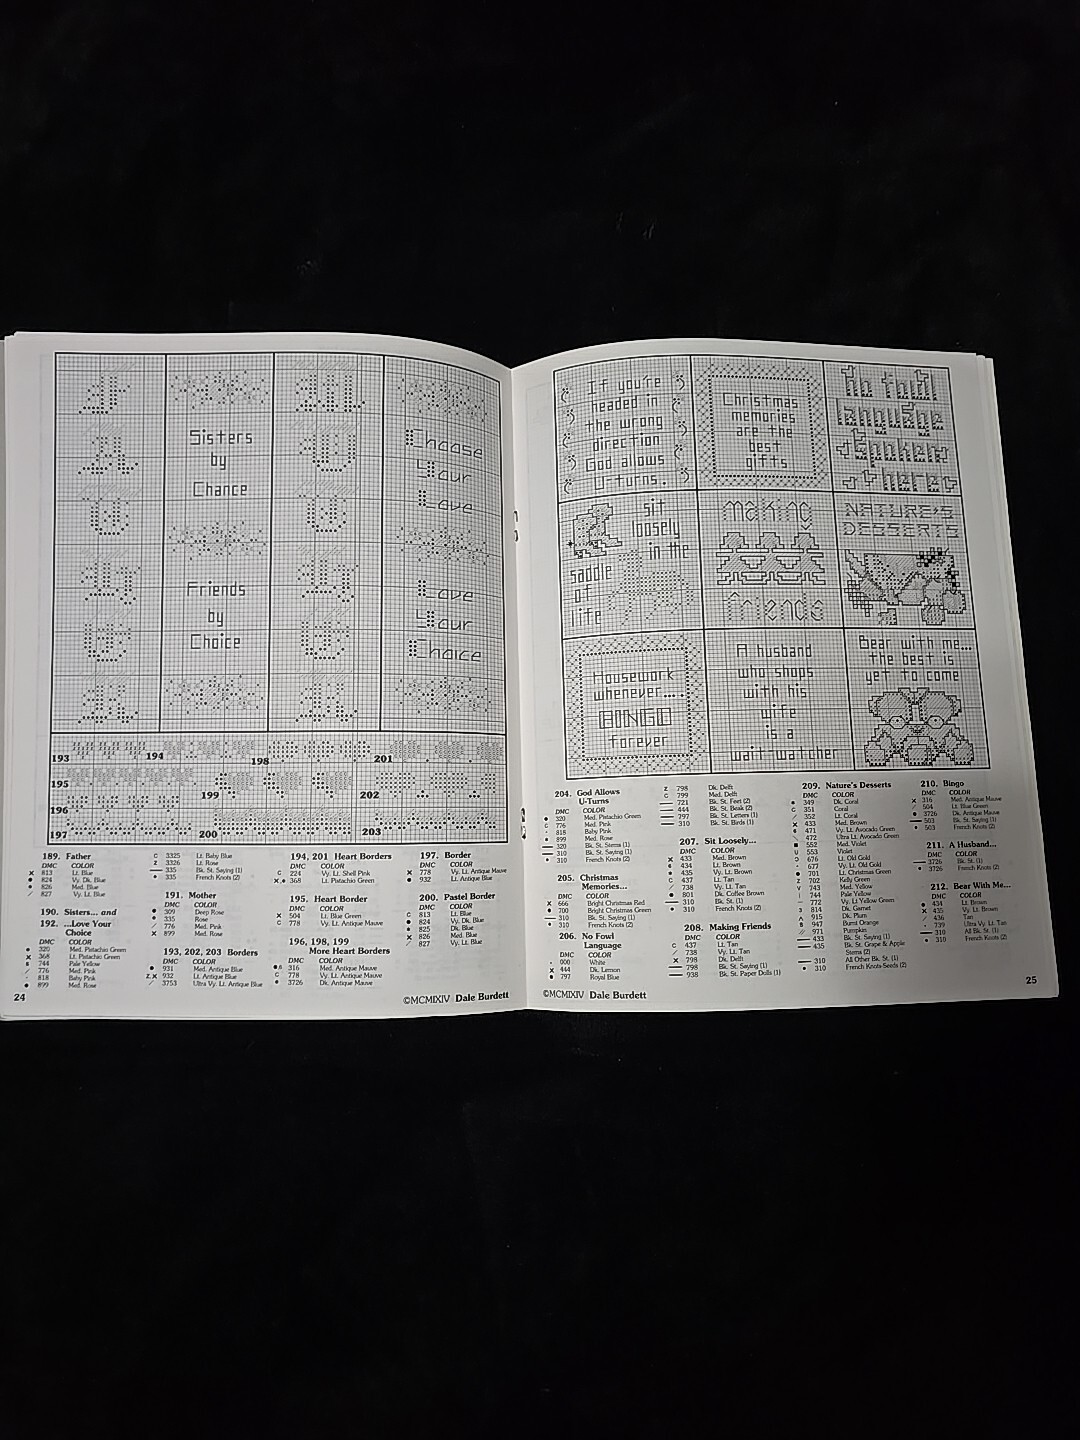 Sisters
by
Chance
Friends
by
Choice
Choose
Your
Love
Love
Your
Choice
193
194
198
201
195
199
202
196
197
200
203
189. Father
DMC COLOR
x 813 Lt. Blue
● 824 Vy. Dk. Blue
● 826 Med. Blue
/ 827 Vy. Lt. Blue
190. Sisters... and
192. ...Love Your
Choice
DMC COLOR
320 Med. Pistachio Green
x 368 Lt. Pistachio Green
744 Pale Yellow
/ 776 Med. Pink
818 Baby Pink
● 899 Med. Rose
C 3325 Lt. Baby Blue
Z 3326 Lt. Rose
— 335 Bk. St. Saying (1)
• 335 French Knots (2)
191. Mother
DMC COLOR
● 309 Deep Rose
335 Rose
/ 776 Med. Pink
x 899 Med. Rose
193, 202, 203 Borders
DMC COLOR
● 931 Med. Antique Blue
Z, X 932 Lt. Antique Blue
/ 3753 Ultra Vy. Lt. Antique Blue
194, 201 Heart Borders
DMC COLOR
C 224 Vy. Lt. Shell Pink
X,● 368 Lt. Pistachio Green
195. Heart Border
DMC COLOR
x 504 Lt. Blue Green
C 778 Vy. Lt. Antique Mauve
196, 198, 199
More Heart Borders
DMC COLOR
316 Med. Antique Mauve
C 778 Vy. Lt. Antique Mauve
● 3726 Dk. Antique Mauve
197. Border
DMC COLOR
x 778 Vy. Lt. Antique Mauve
● 932 Lt. Antique Blue
200. Pastel Border
DMC COLOR
C 813 Lt. Blue
● 824 Vy. Dk. Blue
825 Dk. Blue
x 826 Med. Blue
/ 827 Vy. Lt. Blue
24
©MCMIXIV Dale Burdett
If you're
headed in
the wrong
direction
God allows
U-turns.
Christmas
memories
are the
best
gifts
No fowl
language
spoken
here
sit
loosely
in the
saddle
of
life
making
friends
NATURE'S
DESSERTS
Housework
whenever....
BINGO
forever
A husband
who shops
with his
wife
is a
wait-watcher
Bear with me...
the best is
yet to come
204. God Allows
U-Turns
DMC COLOR
● 320 Med. Pistachio Green
C 776 Med. Pink
/ 818 Baby Pink
● 899 Med. Rose
— 320 Bk. St. Stems (1)
— 310 Bk. St. Saying (1)
• 310 French Knots (2)
205. Christmas
Memories...
DMC COLOR
x 666 Bright Christmas Red
● 700 Bright Christmas Green
— 310 Bk. St. Saying (1)
• 310 French Knots (2)
206. No Fowl
Language
DMC COLOR
· 000 White
x 444 Dk. Lemon
● 797 Royal Blue
Z 798 Dk. Delft
C 799 Med. Delft
— 721 Bk. St. Feet (2)
— 444 Bk. St. Beak (2)
— 797 Bk. St. Letters (1)
— 310 Bk. St. Birds (1)
207. Sit Loosely...
DMC COLOR
x 433 Med. Brown
434 Lt. Brown
● 435 Vy. Lt. Brown
C 437 Lt. Tan
/ 738 Vy. Lt. Tan
● 801 Dk. Coffee Brown
— 310 Bk. St. (1)
• 310 French Knots (2)
208. Making Friends
DMC COLOR
C 437 Lt. Tan
/ 738 Vy. Lt. Tan
x 798 Dk. Delft
— 798 Bk. St. Saying (1)
— 938 Bk. St. Paper Dolls (1)
209. Nature's Desserts
DMC COLOR
● 349 Dk. Coral
C 351 Coral
/ 352 Lt. Coral
x 433 Med. Brown
471 Vy. Lt. Avocado Green
472 Ultra Lt. Avocado Green
■ 552 Med. Violet
U 553 Violet
676 Lt. Old Gold
677 Vy. Lt. Old Gold
● 701 Lt. Christmas Green
702 Kelly Green
743 Med. Yellow
744 Pale Yellow
— 772 Vy. Lt. Yellow Green
814 Dk. Garnet
915 Dk. Plum
947 Burnt Orange
// 971 Pumpkin
— 433 Bk. St. Saying (1)
— 435 Bk. St. Grape & Apple
Stems (2)
— 310 All Other Bk. St. (1)
• 310 French Knots Seeds (2)
210. Bingo
DMC COLOR
x 316 Med. Antique Mauve
/ 504 Lt. Blue Green
● 3726 Dk. Antique Mauve
— 503 Bk. St. Saying (1)
• 503 French Knots (2)
211. A Husband...
DMC COLOR
— 3726 Bk. St. (1)
• 3726 French Knots (2)
212. Bear With Me...
DMC COLOR
● 434 Lt. Brown
x 435 Vy. Lt. Brown
/ 436 Tan
· 739 Ultra Vy. Lt. Tan
— 310 All Bk. St. (1)
• 310 French Knots (2)
©MCMIXIV Dale Burdett
25